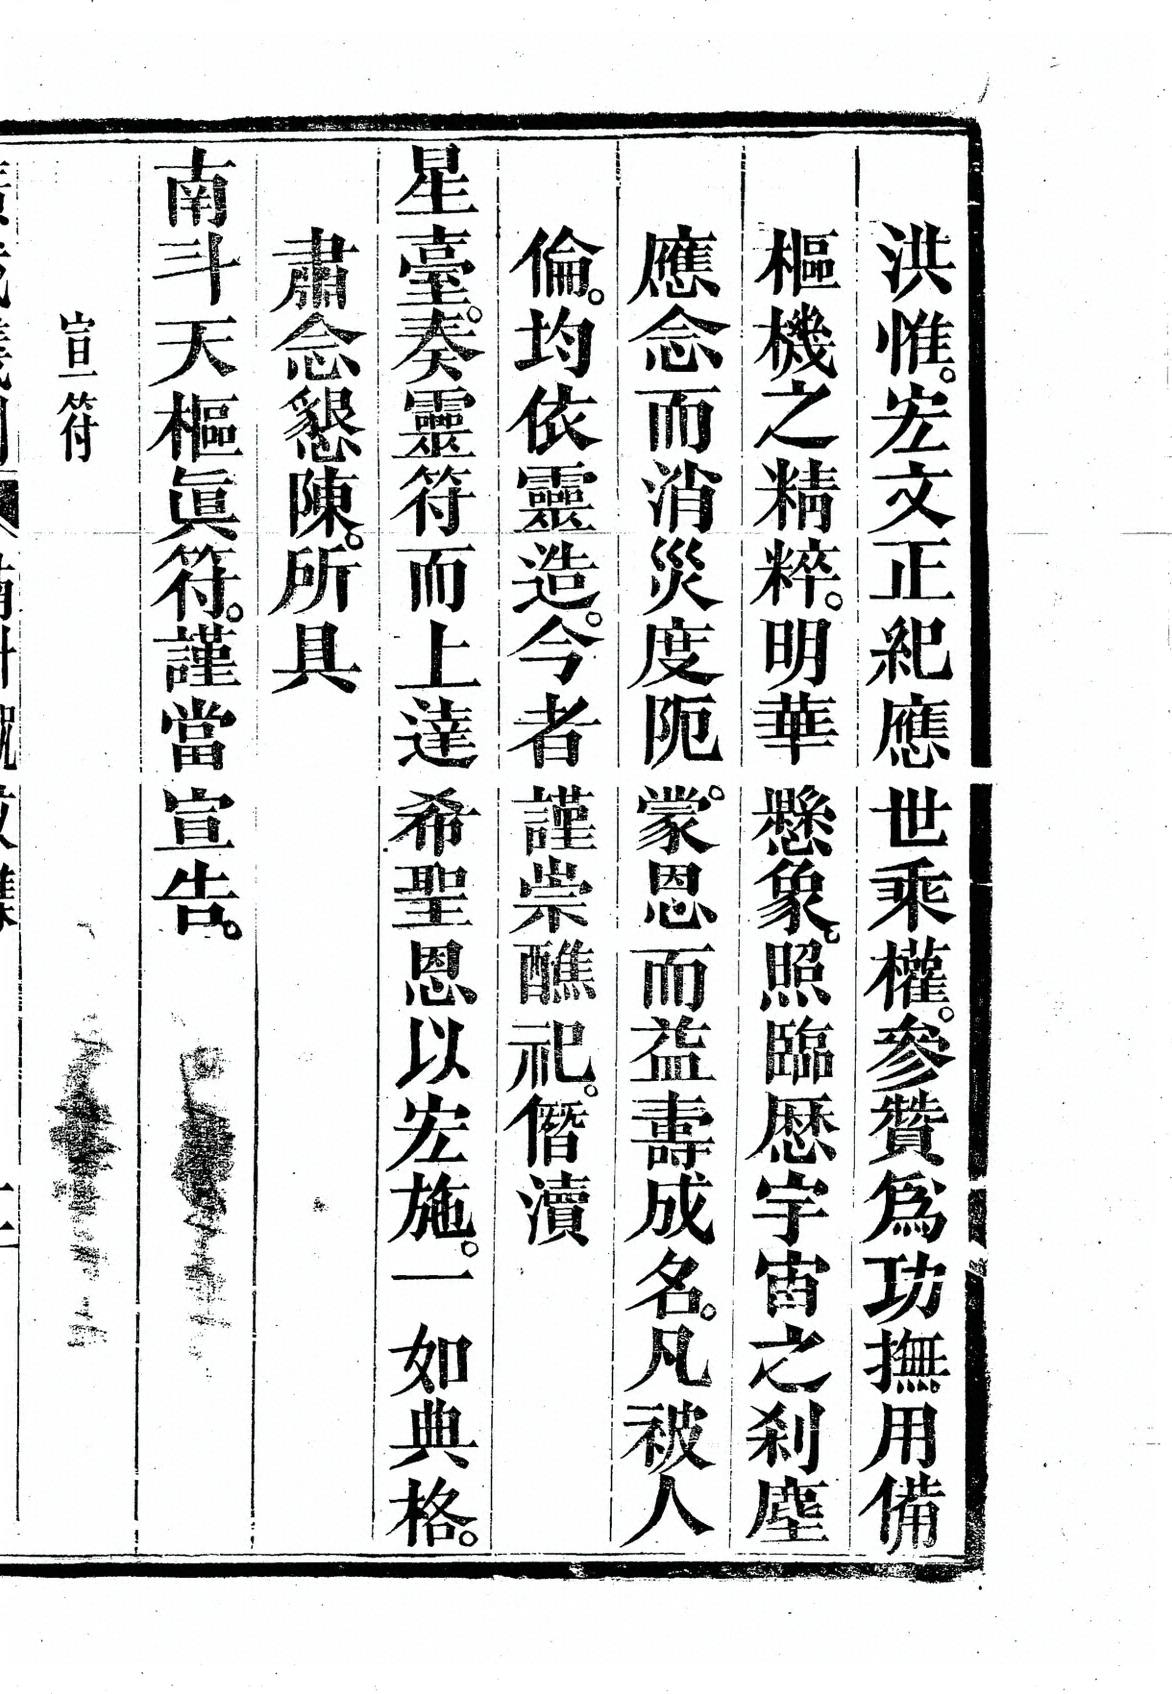 洪惟。宏文正紀應世乘權。參贊爲功撫。用備
樞機之精粹。明華懸象。照臨歷宇宙之刹塵
應念而消災度阨。蒙恩而益壽成名。凡被人
倫。均依靈造。今者謹崇醮祀。僭瀆
星臺。奏靈符而上達希聖恩以宏施。一如典格。
肅念懇陳。所具
南斗天樞眞符。謹當宣告。
宣符